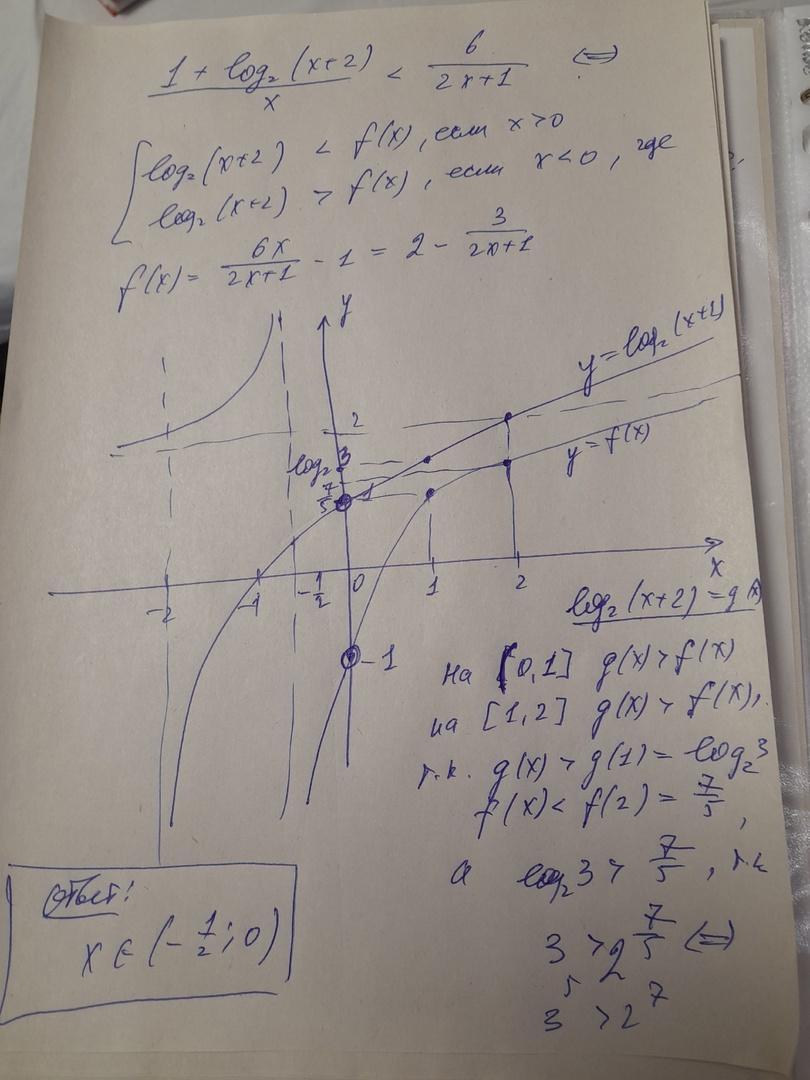 (1 + log₂(x+2))/x < 6/(2x+1) (=)
[ log₂(x+2) < f(x), если x>0
log₂(x+2) > f(x), если x<0, где
f(x) = 6x/(2x+1) - 1 = 2 - 3/(2x+1)
y
y = log₂(x+2)
2
log₂3
y = f(x)
7/5
1
-2 -1 -1/2 0 1 2 x
log₂(x+2) = g(x)
-1
на [0,1] g(x) > f(x)
на [1,2] g(x) > f(x),
т.к. g(x) > g(1) = log₂3
f(x) < f(2) = 7/5,
а log₂3 > 7/5, т.к
3 > 2^(7/5) (=)
3^5 > 2^7
Ответ:
x ∈ (-1/2; 0)